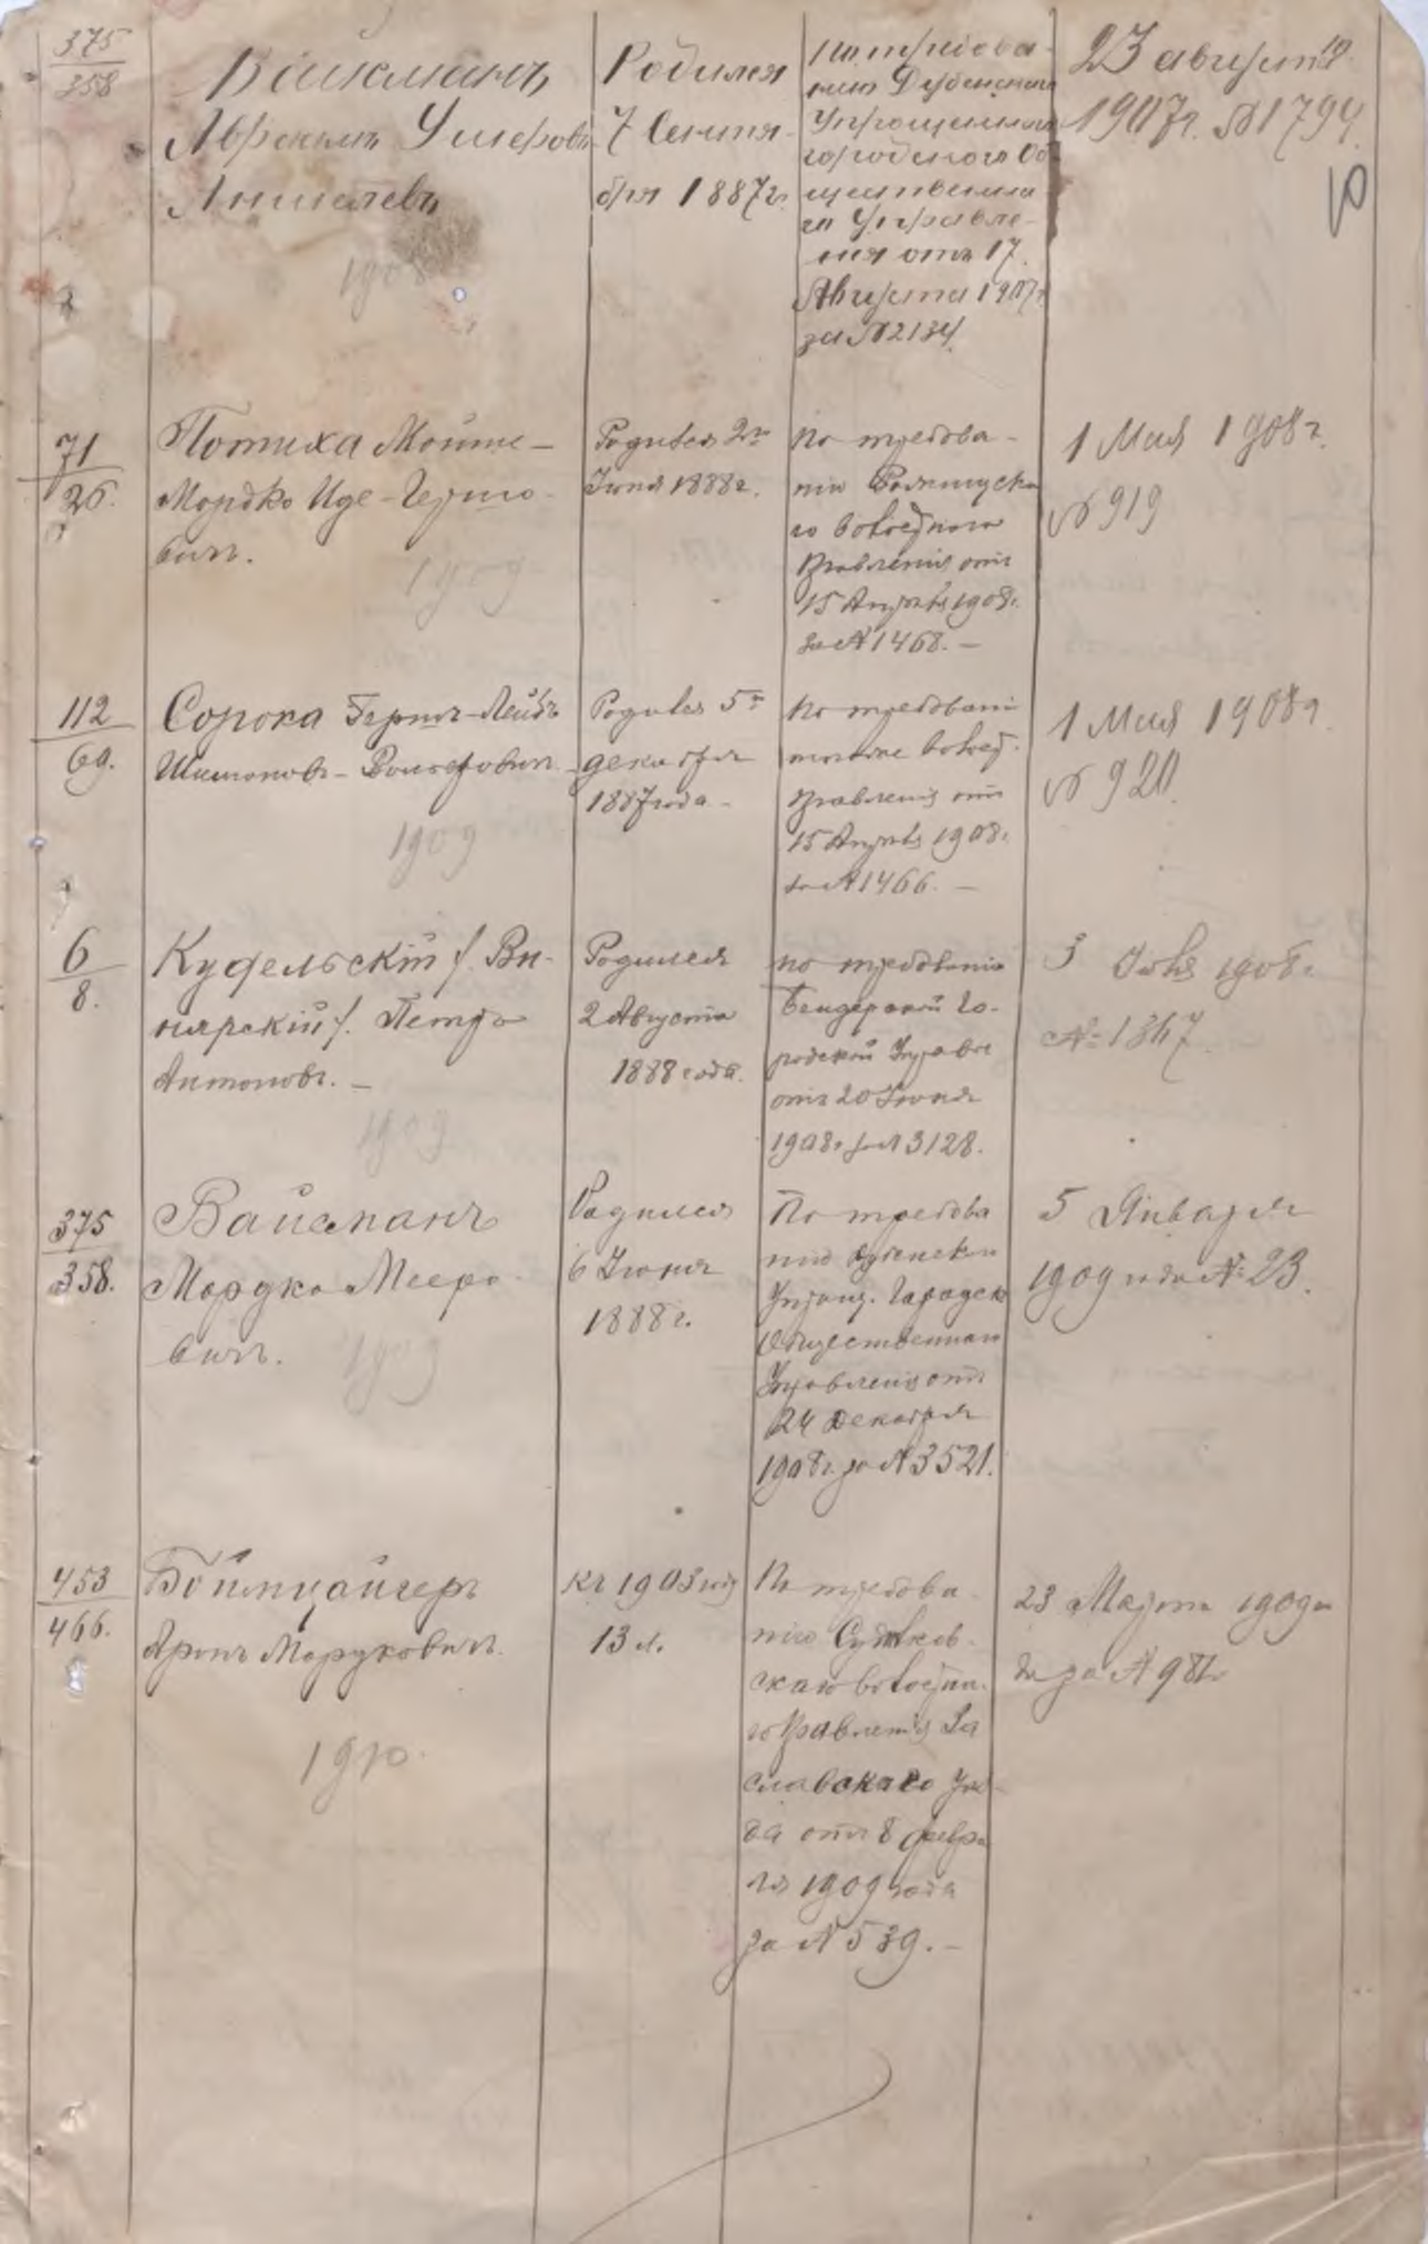 375
358
Вайсманъ
Аврумъ Ушеровъ
Аншелевъ
1908
Родился
7 Сентя-
бря 1887 г.
По требова-
нию Дубенскаго
Упрощеннаго
городского Об-
щественна-
го Управле-
ния отъ 17
Августа 1907 г.
за № 2134
23 августа
1907 г. № 1794
10
71
26.
Потиха Мойше-
Мордко Иде-Гершо-
вичъ.
1909
Родился 2го
Июня 1888 г.
По требова-
нию
го волостного
Правления отъ
15 Апреля 1908 г.
за № 1468. —
1 Мая 1908 г.
№ 919
112
69.
Сорока Гершъ-Лейбъ
Шимоновъ-
1909
Родился 5го
декабря
1887 года -
По требовани
волост.
Правления отъ
15 Апреля 1908 г.
за № 1466. —
1 Мая 1908 г.
№ 920
6
8.
Кудельскій /. Ви-
нярскій /. Петръ
Антоновъ. —
1909
Родился
2 Августа
1888 года.
По требованію
Бендерской Го-
родской Управы
отъ 20 Июня
1908 г. за № 3128.
3 Июля 1908 г.
№ 1367
375
358.
Вайсманъ
Мордко Мееро-
вичъ.
1909
Родился
6 Июня
1888 г.
По требова
нію Дубенского
Упрощ. Городск
Общественнаго
Управленія отъ
24 Декабря
1908 г. за № 3521.
5 Января
1909 г. за № 23.
453
466.
Боймцайгеръ
Аронъ Мордковичъ.
1910.
Къ 1903 году
13 л.
По требова-
нію Судилков-
скаго волостна-
го Правленія За
славскаго Уез-
да отъ 8 февра
ля 1909 года
за № 539. —
23 Марта 1909
за № 981